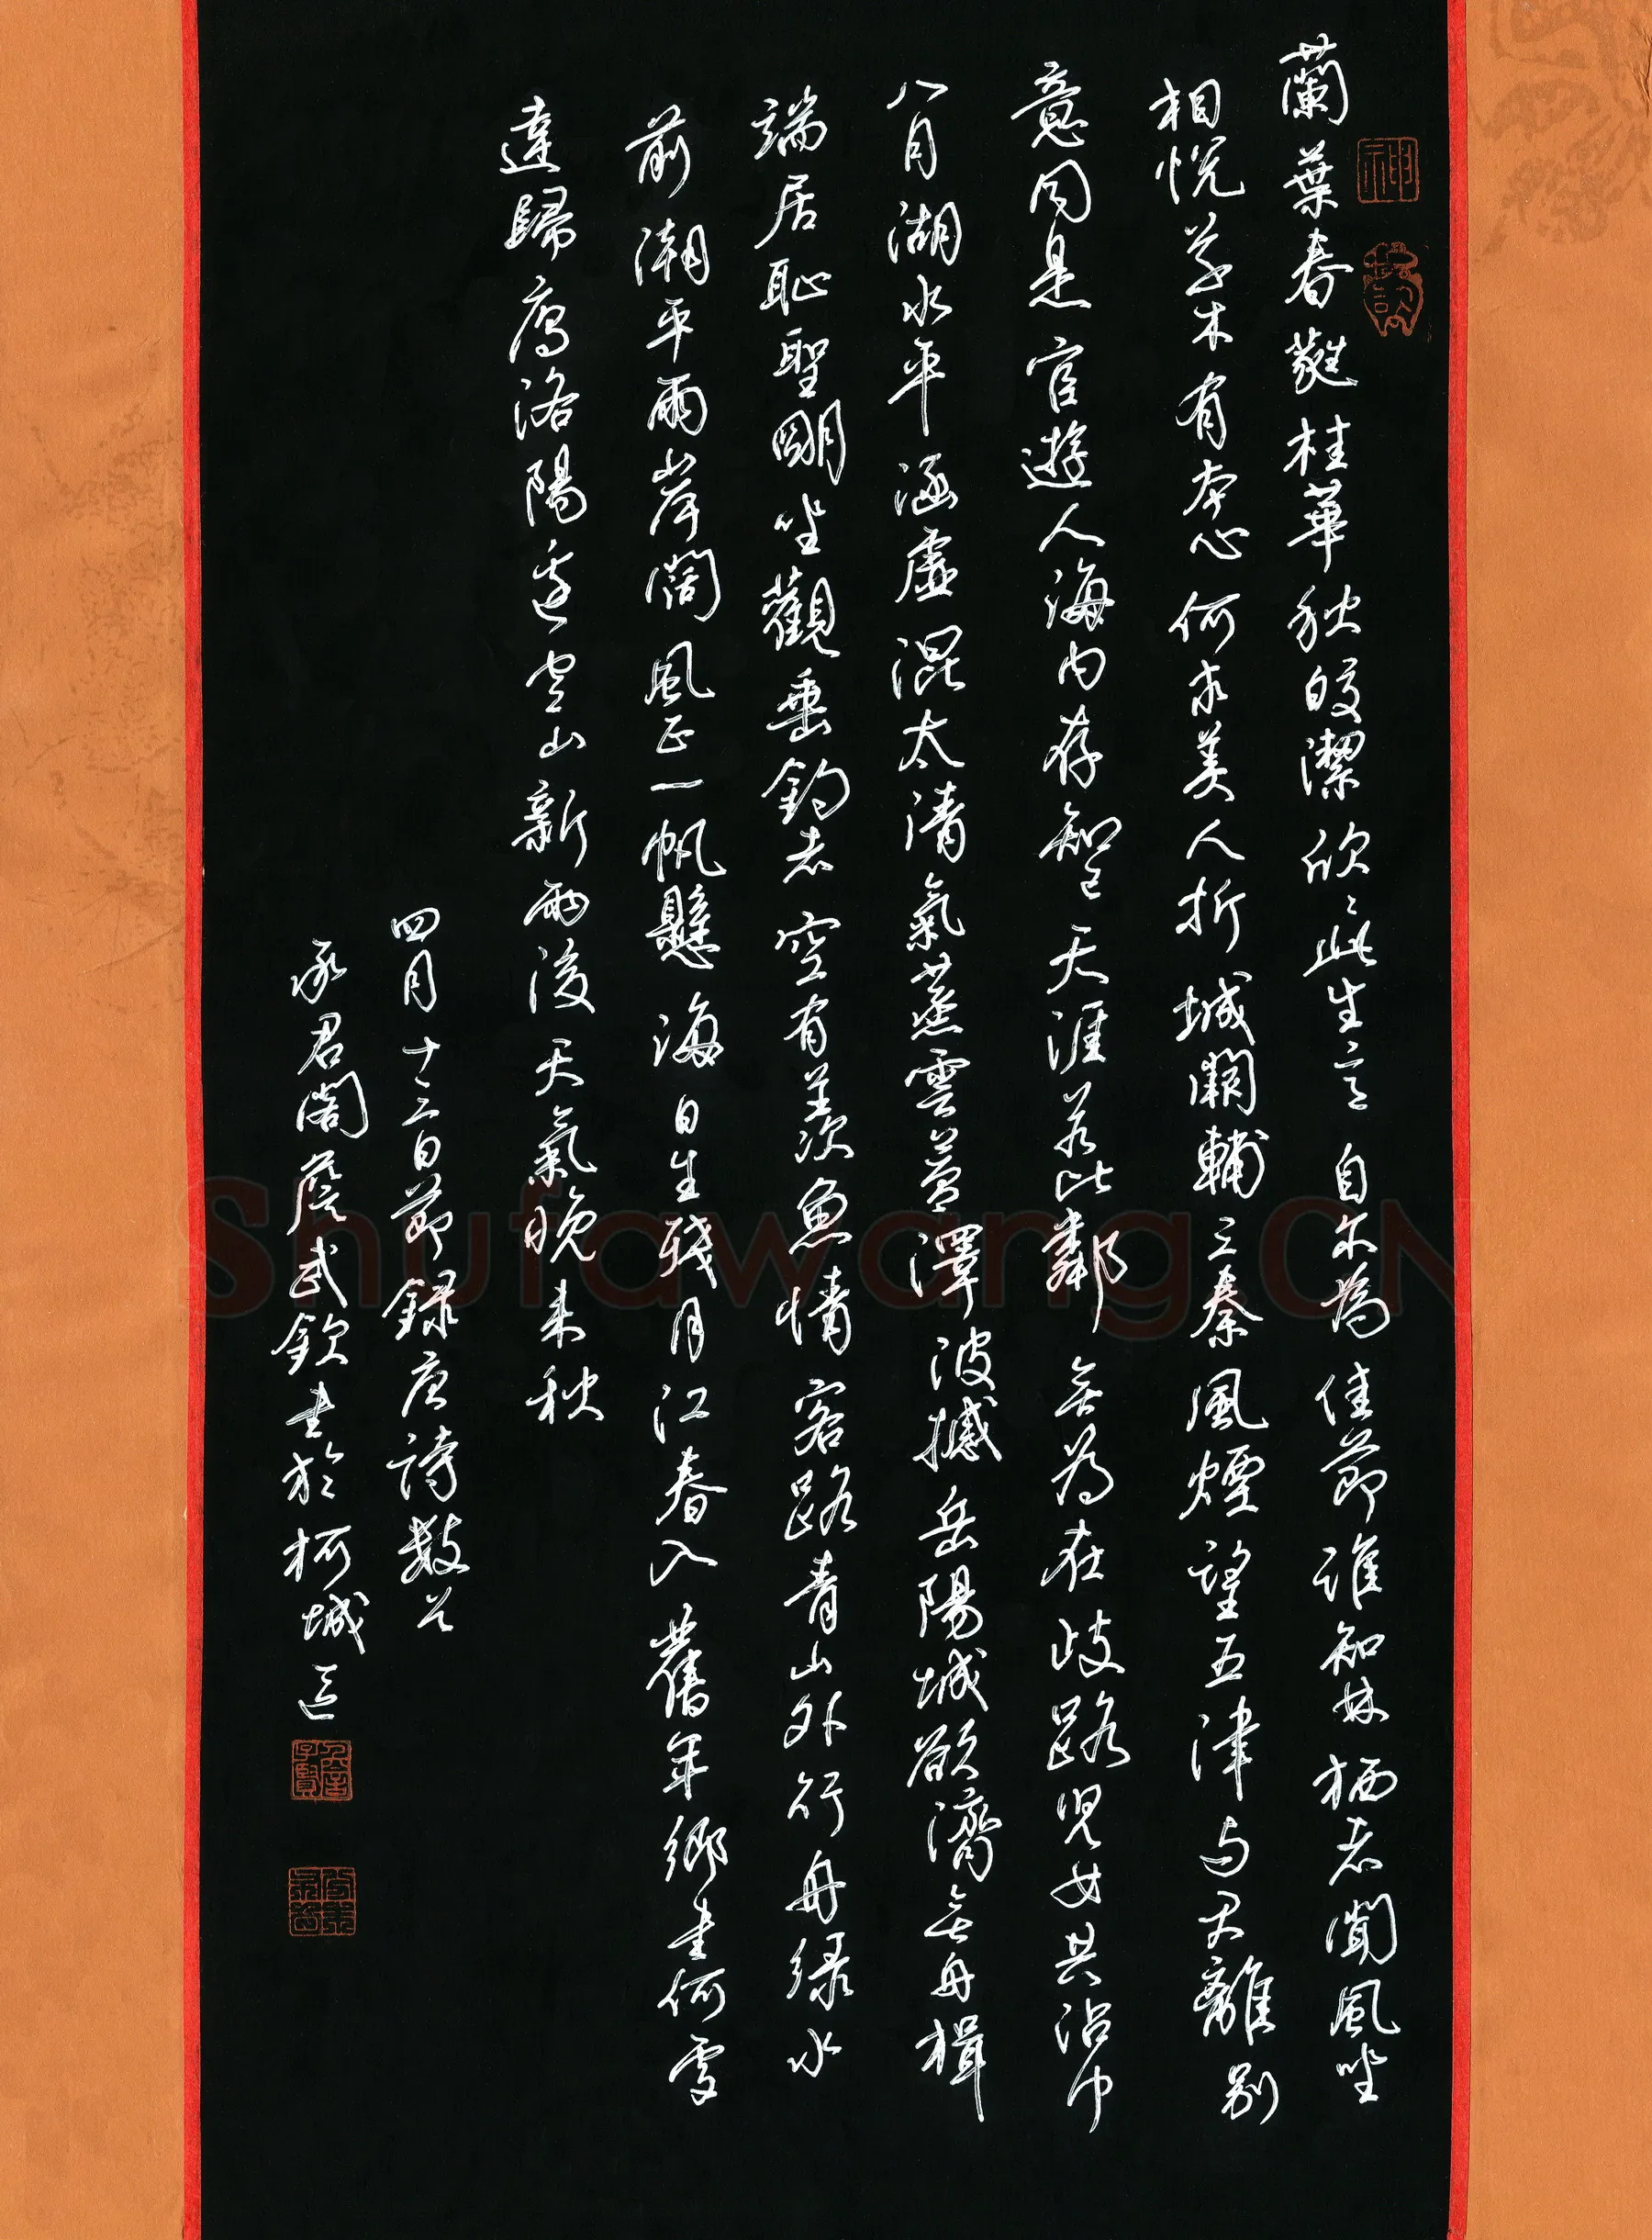 蘭葉春蕤桂華秋皎潔欣〻此生意自尔為佳節誰知林栖者聞風坐
相悦草木有本心何求美人折城闕輔三秦風煙望五津与君離别
意同是宦遊人海内存知己天涯若比鄰無為在歧路児女共沾巾
八月湖水平涵虚混太清氣蒸雲夢澤波撼岳陽城欲濟無舟楫
端居恥聖明坐觀垂釣者空有羨魚情客路青山外行舟緑水
前潮平兩岸闊風正一帆懸海日生殘月江春入舊年鄉書何處
達歸鴈洛陽邊空山新雨後天氣晚来秋
四月十三日節録唐詩数首
承君閣 武欽書於柯城
Shufawang.CN